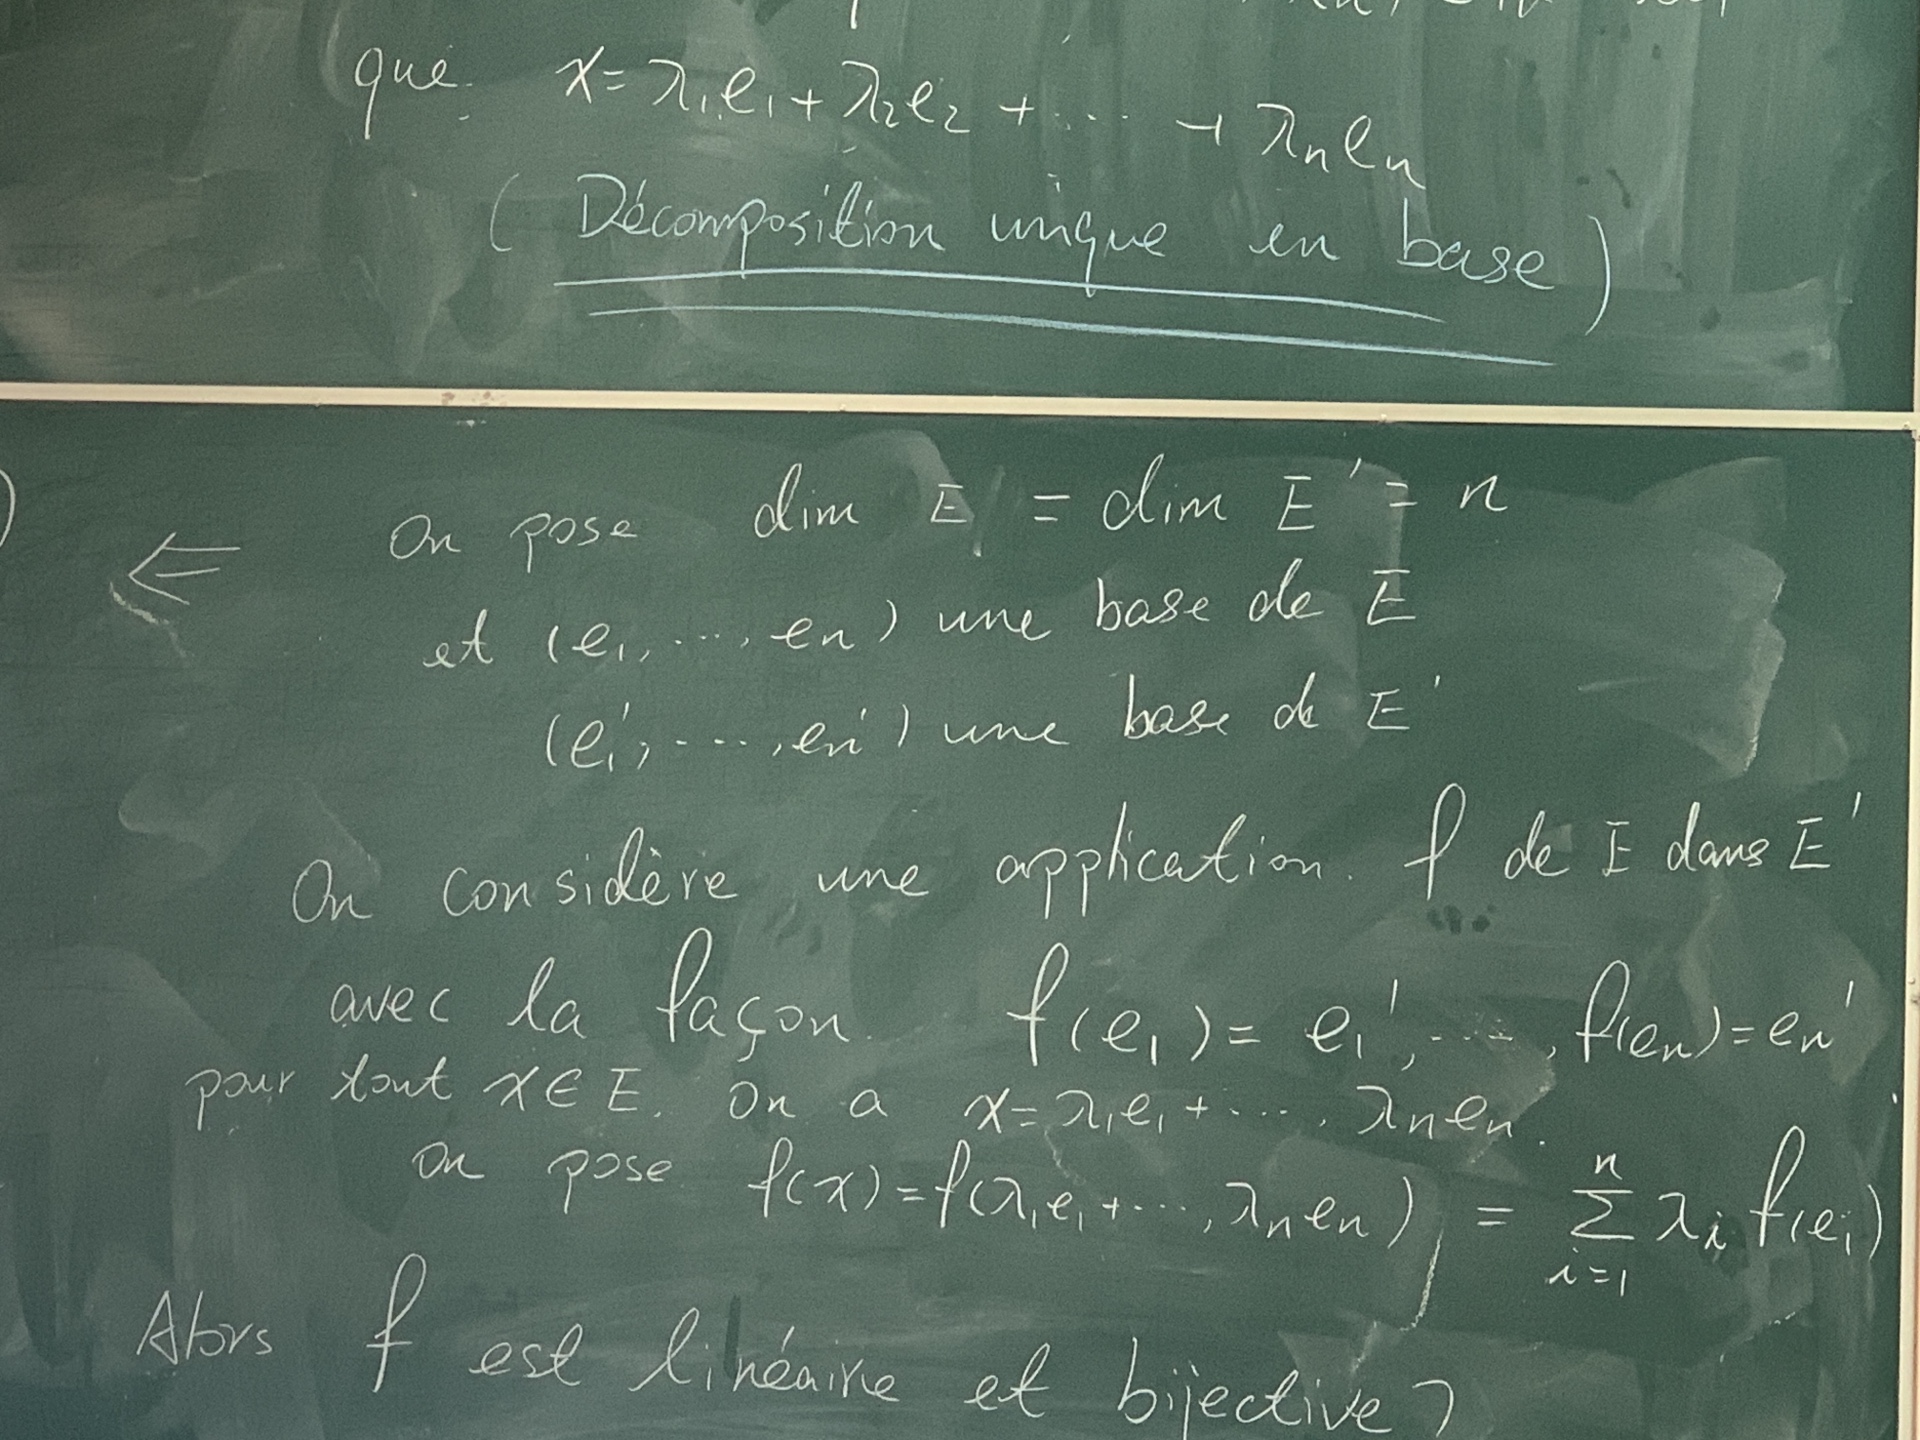 que x=λ₁e₁+λ₂e₂ + ... + λₙeₙ
( Décomposition unique en base )
⇐ On pose dim E = dim E' = n
et (e₁, ..., en) une base de E
(e₁', ..., en') une base de E'
On considère une application. f de E dans E'
avec la façon f(e₁) = e₁', ..., f(en) = en'
pour tout x∈E. on a x=λ₁e₁+ ... λₙeₙ.
on pose f(x)=f(λ₁e₁+...,λₙeₙ) = ∑ᵢ₌₁ⁿ λᵢ f(eᵢ)
Alors f est linéaire et bijective?